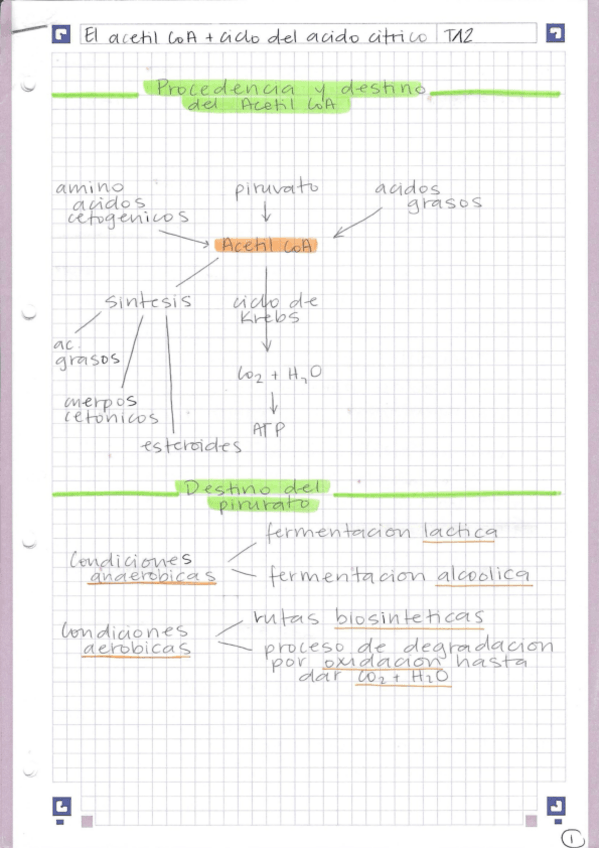 El acetil CoA + ciclo del acido citrico T12
Procedencia y destino
del Acetil CoA
amino
acidos
cetogenicos
piruvato
acidos
grasos
Acetil CoA
sintesis
ciclo de
Krebs
ac.
grasos
CO2 + H2O
cuerpos
cetonicos
ATP
esteroides
Destino del
piruvato
fermentacion lactica
Condiciones
anaerobicas
fermentacion alcoolica
rutas biosinteticas
Condiciones
aerobicas
proceso de degradacion
por oxidacion hasta
dar CO2 + H2O
1